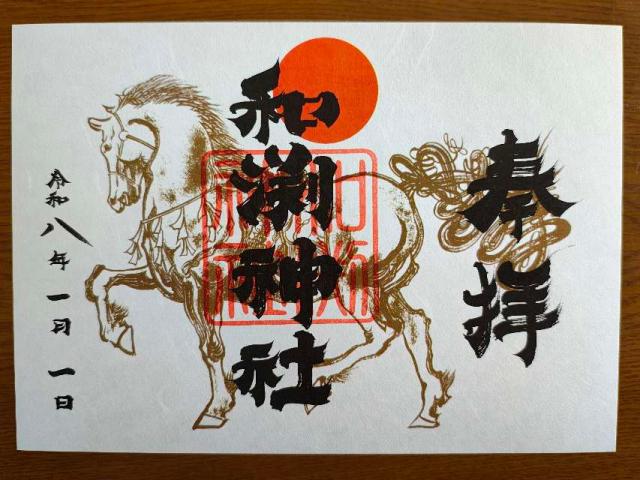 奉拝
和渕神社
令和八年一月一日